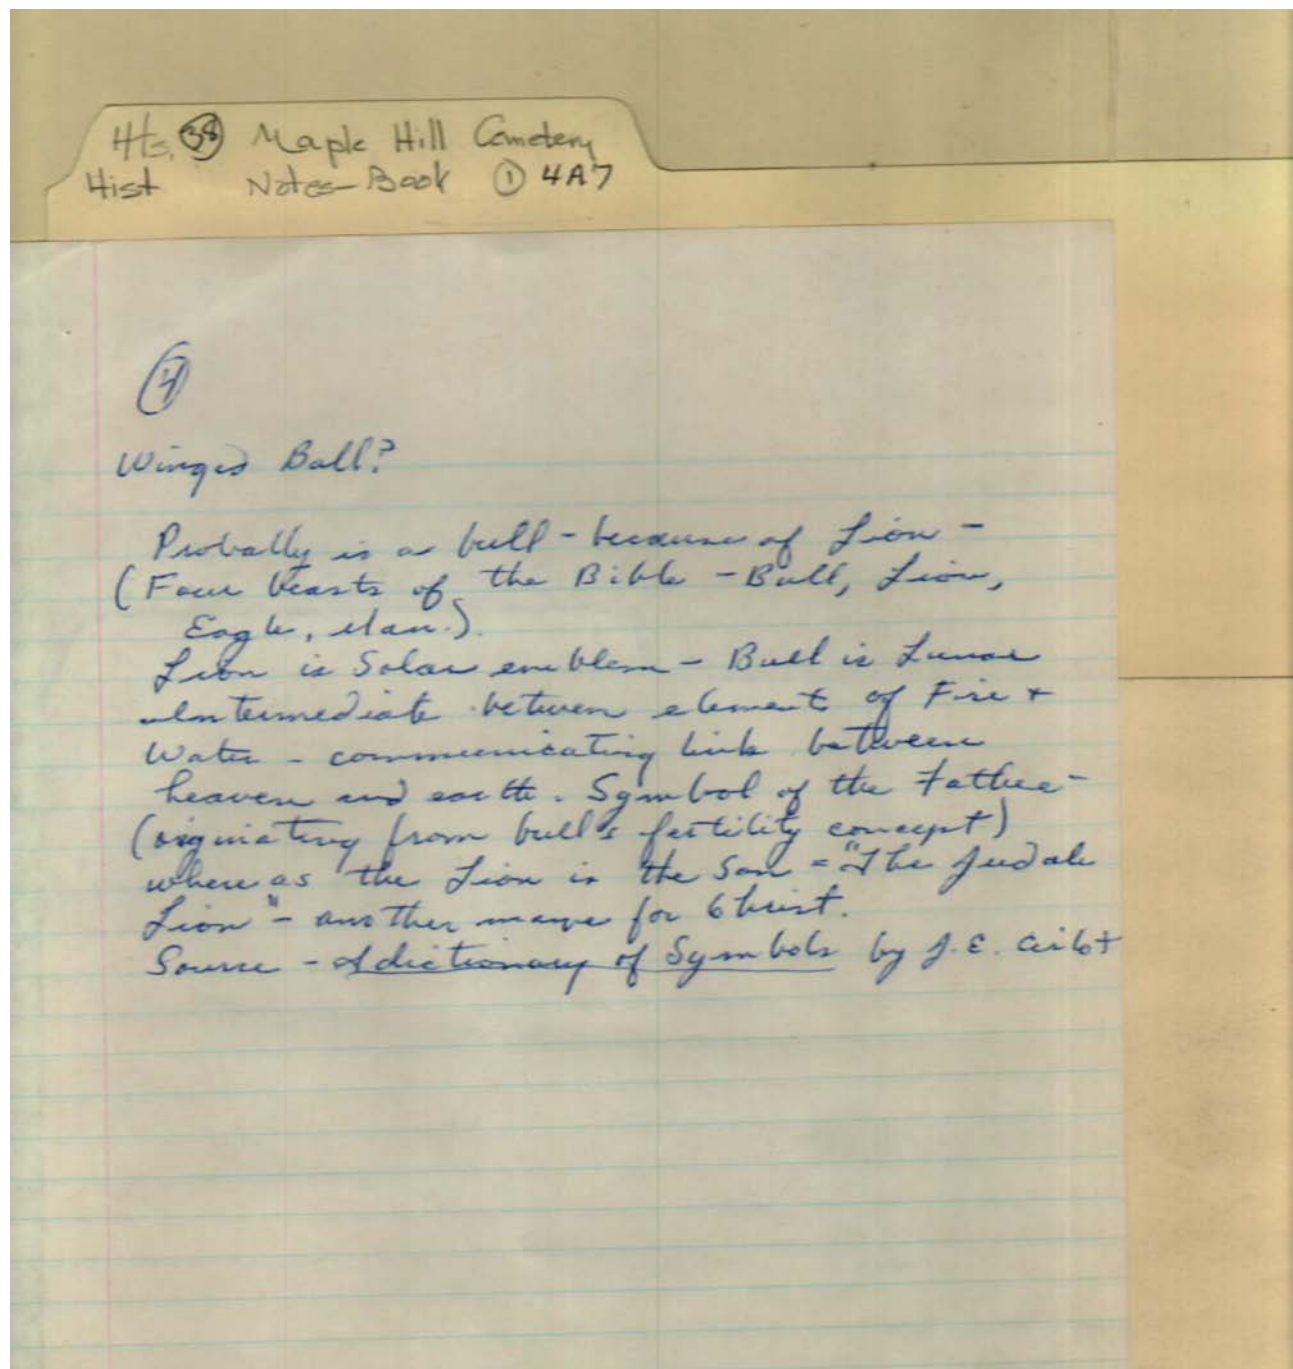 Hts. 38 Maple Hill Cemetery
Hist Notes-Book 1 4A7
4
Winged Ball?
Probally is a bull - because of Lion -
(Four beasts of the Bible - Bull, Lion,
Eagle, Man.)
Lion is Solar emblem - Bull is Lunar
Intermediate between element of Fire +
Water - communicating link between
heaven and earth. Symbol of the Father -
(originating from bull's fertility concept)
where as the Lion is the Son = "The Judah
Lion" - another name for Christ.
Source - A dictionary of Symbols by J.E. Cirlot